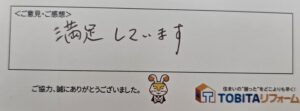 <ご意見・ご感想>
満足しています
ご協力、誠にありがとうございました。
住まいの"困った"をどこよりも早く!
TOBITAリフォーム